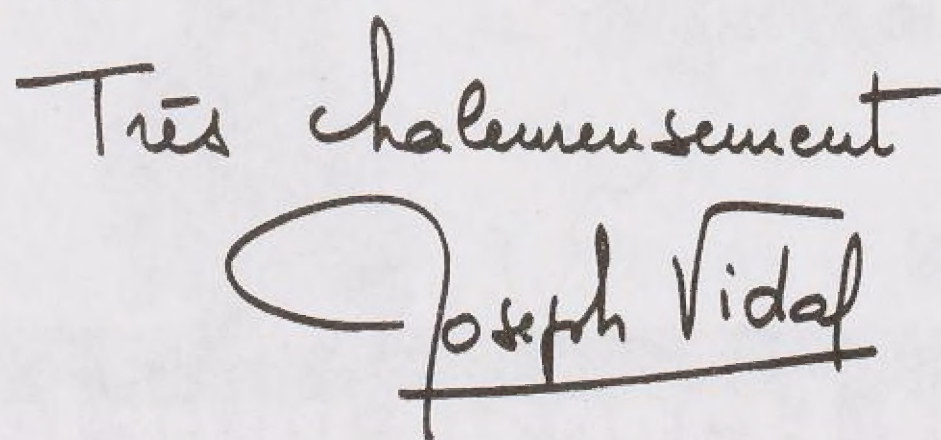 Très chaleureusement
Joseph Vidal